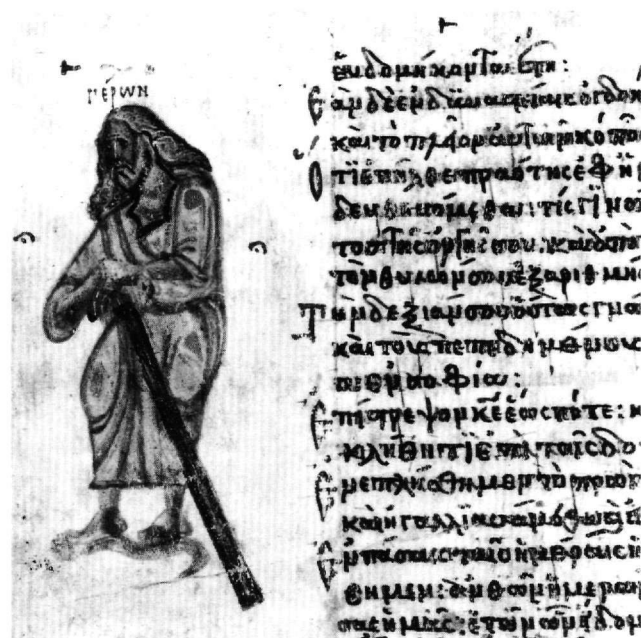 ΓΕΡΩΝ
ἑβδομήκοντα ἔτη:
Ἐὰν δὲ ἐν δυναστείαις ὀγδοη
καὶ τὸ πλεῖον αὐτῶν κόπο
Ὅτι ἐπῆλθε πραότης ἐφ ἡ
δευθησόμεθα: τίς γινώ
τος τῆς ὀργῆς σου. καὶ ἀπὸ
τὸν θυμόν σου ἐξαριθμή
Τὴν δεξιάν σου οὕτως γνώ
καὶ τοὺς πεπεδημένους
ἐν σοφία:
Ἐπίστρεψον κε ἕως πότε: κ
κλήθητι ἐπὶ τοῖς δο
Ἐνεπλήσθημεν τὸ πρωῒ
καὶ ἠγαλλιασάμεθα
Ἐν πάσαις ταῖς ἡμέραις ἡ
θείημεν: ἀνθ ὧν ἡμερῶν
σας ἡμᾶς: ἐτῶν ὧν εἴδομ